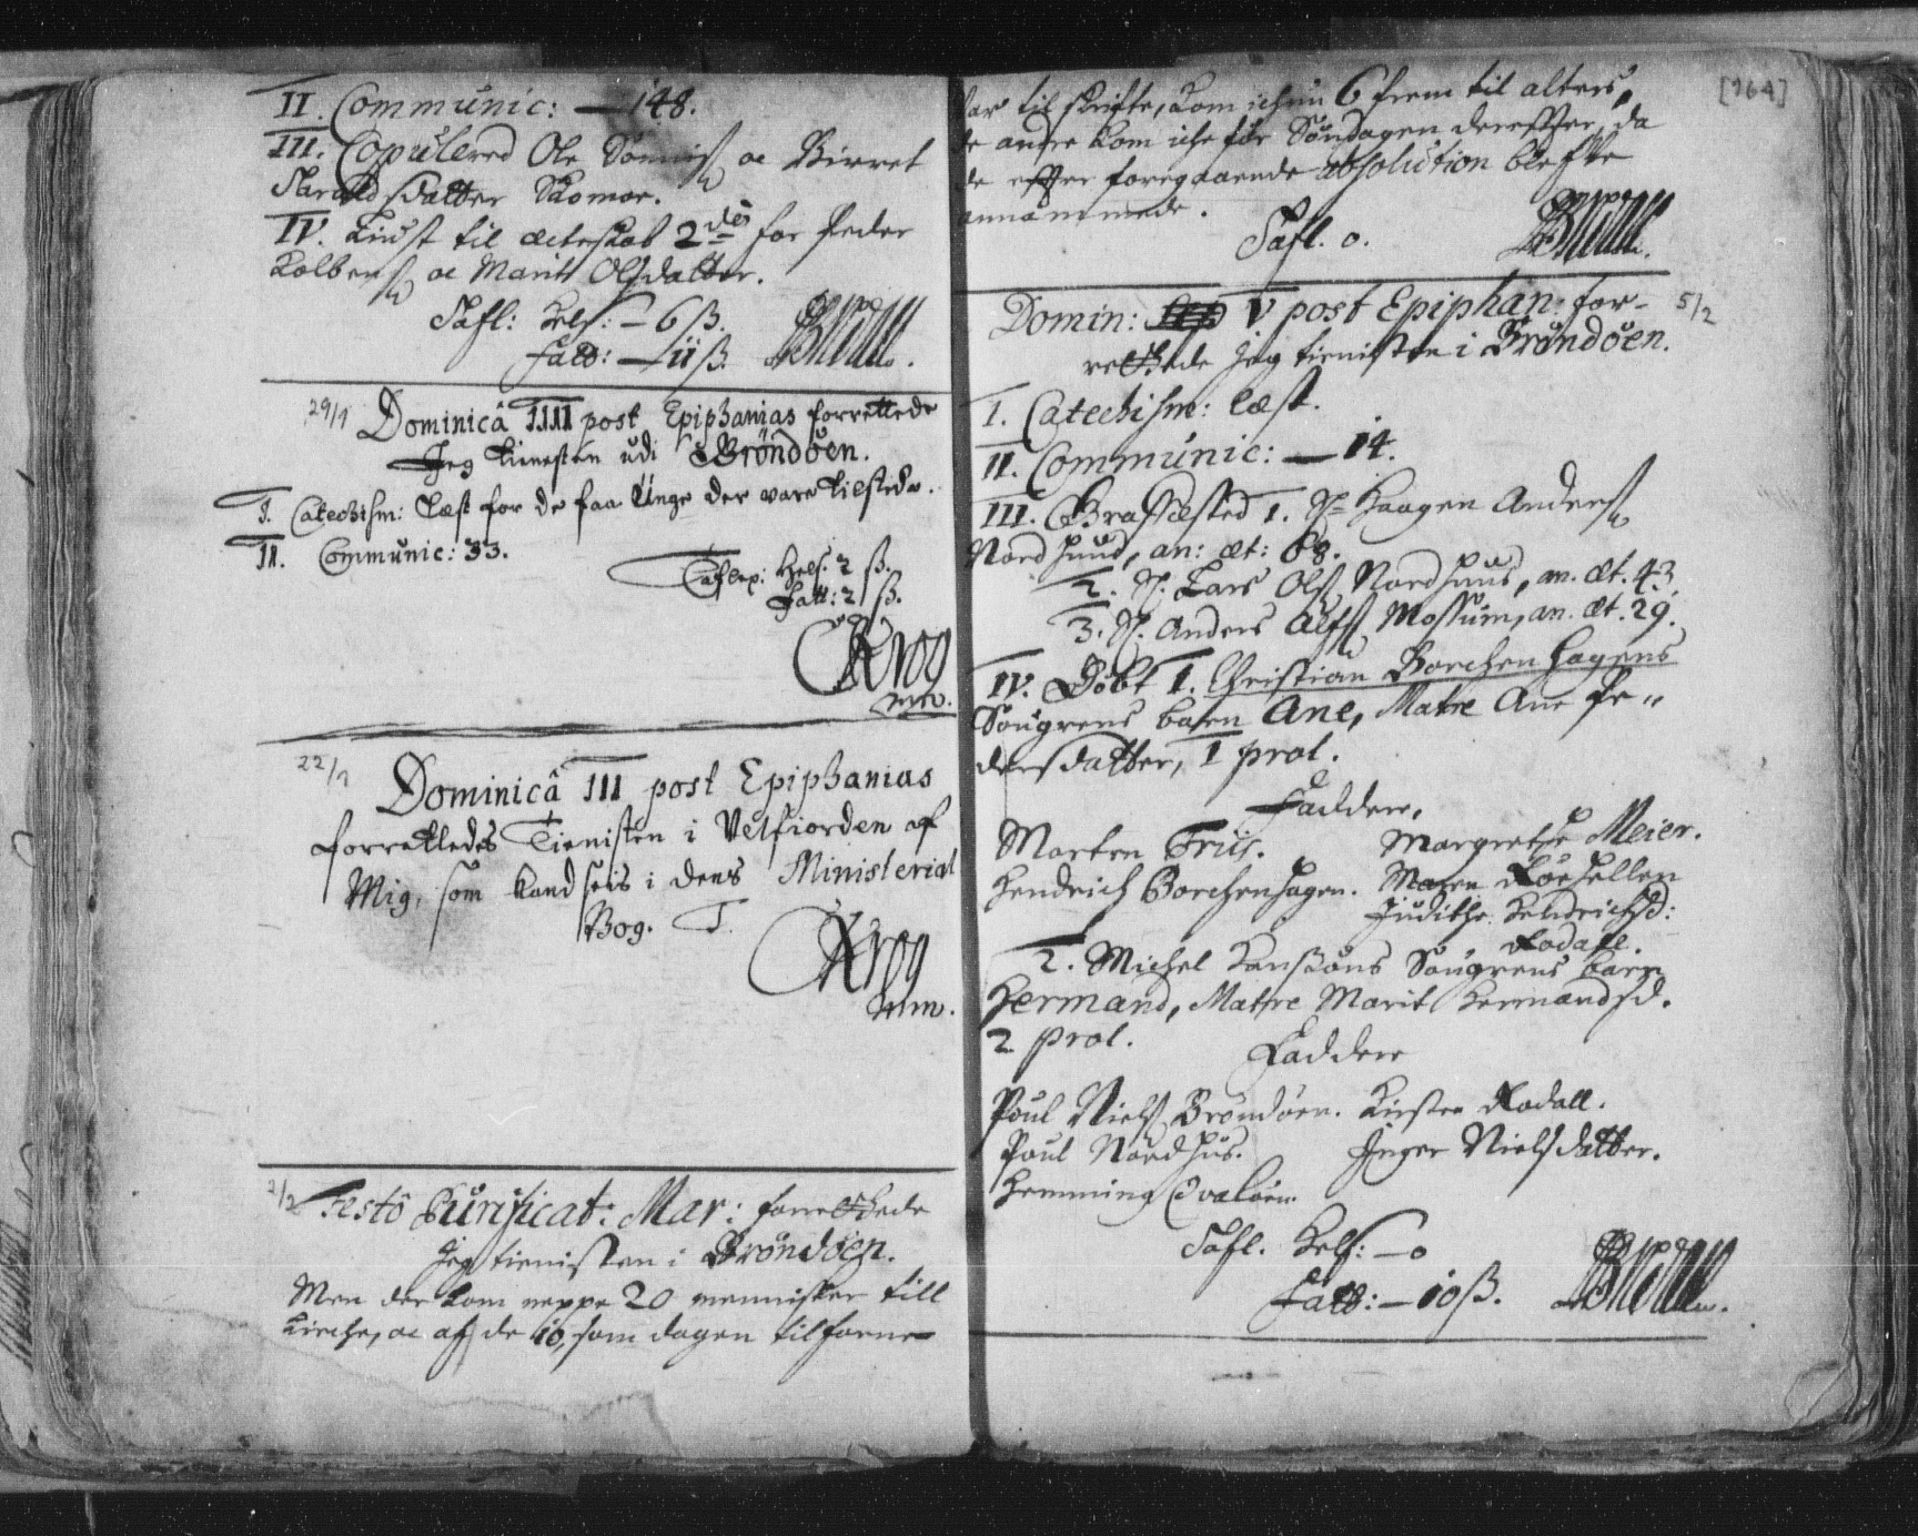 II. Communic: — 148.
III. Copulered Ole Sönnis: oc Birret
Haraldsdatter Skomoe.
IV. Liust til ecteskab 2den for Peder
Kolbens: oc Maritt Olsdatter.
Tafl: Hels: — 6 ß.
Fatt: — 11 ß.
29/1 Dominicâ IIII post Epiphanias forrettede
Jeg Tienesten udi Brøndöen.
I. Catechism: Læst for de faa Unge der vare tilstede.
II. Communic: 33.
Taflep: Hels: 2 ß.
Fatt: 2 ß.
Krog
mp.
22/1
Dominicâ III post Epiphanias
forrettedes Tienisten i Velfiorden af
Mig, som kand sees i dens Ministerial
Bog. T.
Krog
mp.
2/2 Festo Purificat: Mar: forrettede
Jeg tienisten i Bröndöen.
Men der kom neppe 20 mennisker till
Kirche, oc af de 10, som dagen tilforne
[164]
var til skrifte, kom ichun 6 frem til alters,
de andre kom iche før Söndagen derefter, da
de efter foregaaende absolution blefve
annammede.
Tafl. 0.
Domin: V post Epiphan: for- 5/2
rettede jeg tienisten i Bröndöen.
I. Catechism: læst.
II. Communic: — 14.
III. Græssested 1. Sl. Haagen Anders:
Nordhuus, an: æt: 68.
2. Sl. Lars Ols: Nordhuus, an. æt. 43.
3. Sl. Anders Alfs: Mossum, an. æt. 29.
IV. Döbt 1. Christian Borchenhagens
Sougnens barn Ane, Matre Ane Pe-
dersdatter, 1 prol.
Faddere,
Morten Friis. Margrethe Meier.
Hendrich Borchenhagen. Maren
Judithe Hendrichsd:
Rodall.
2. Michel Sougnens barn
Hermand, Matre Marit Hermandsd.
2 prol.
Faddere
Poul Niels: Bröndöen. Kirsten Rodall.
Poul Nordhus. Inger Nielsdatter.
Hemming Qvalöen.
Tafl. Hels: — 0
Fatt: — 10 ß.